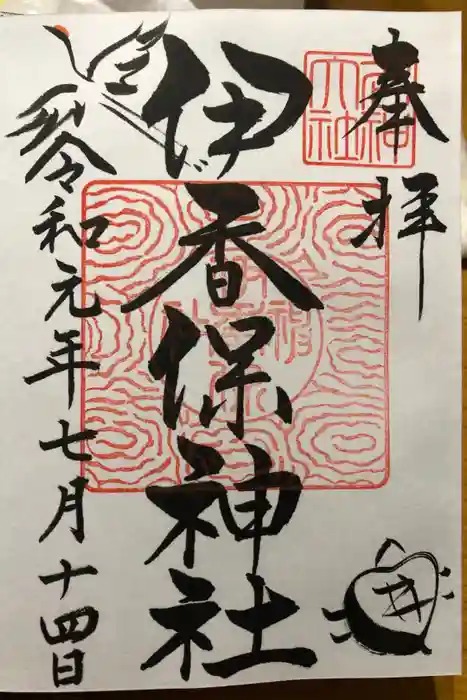 奉拝
名神
大社
伊香保神社
令和元年七月十四日